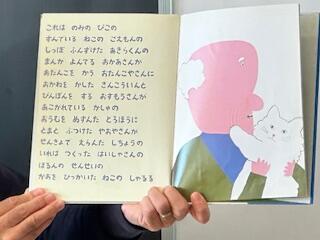 これは のみの ぴこの
すんでいる ねこの ごえもんの
しっぽ ふんずけた あきらくんの
まんが よんでる おかあさんが
おだんごを かう おだんごやさんに
おかねを かした さんこういんと
ぴんぽんを する おすもうさんが
あこがれている かしゅの
おうむを ぬすんだ どろぼうに
とまと ぶつけた やおやさんが
せんきょで えらんだ しちょうの
いれば つくった はいしゃさんの
ほるんの せんせいの
かおを ひっかいた ねこの しゃるる